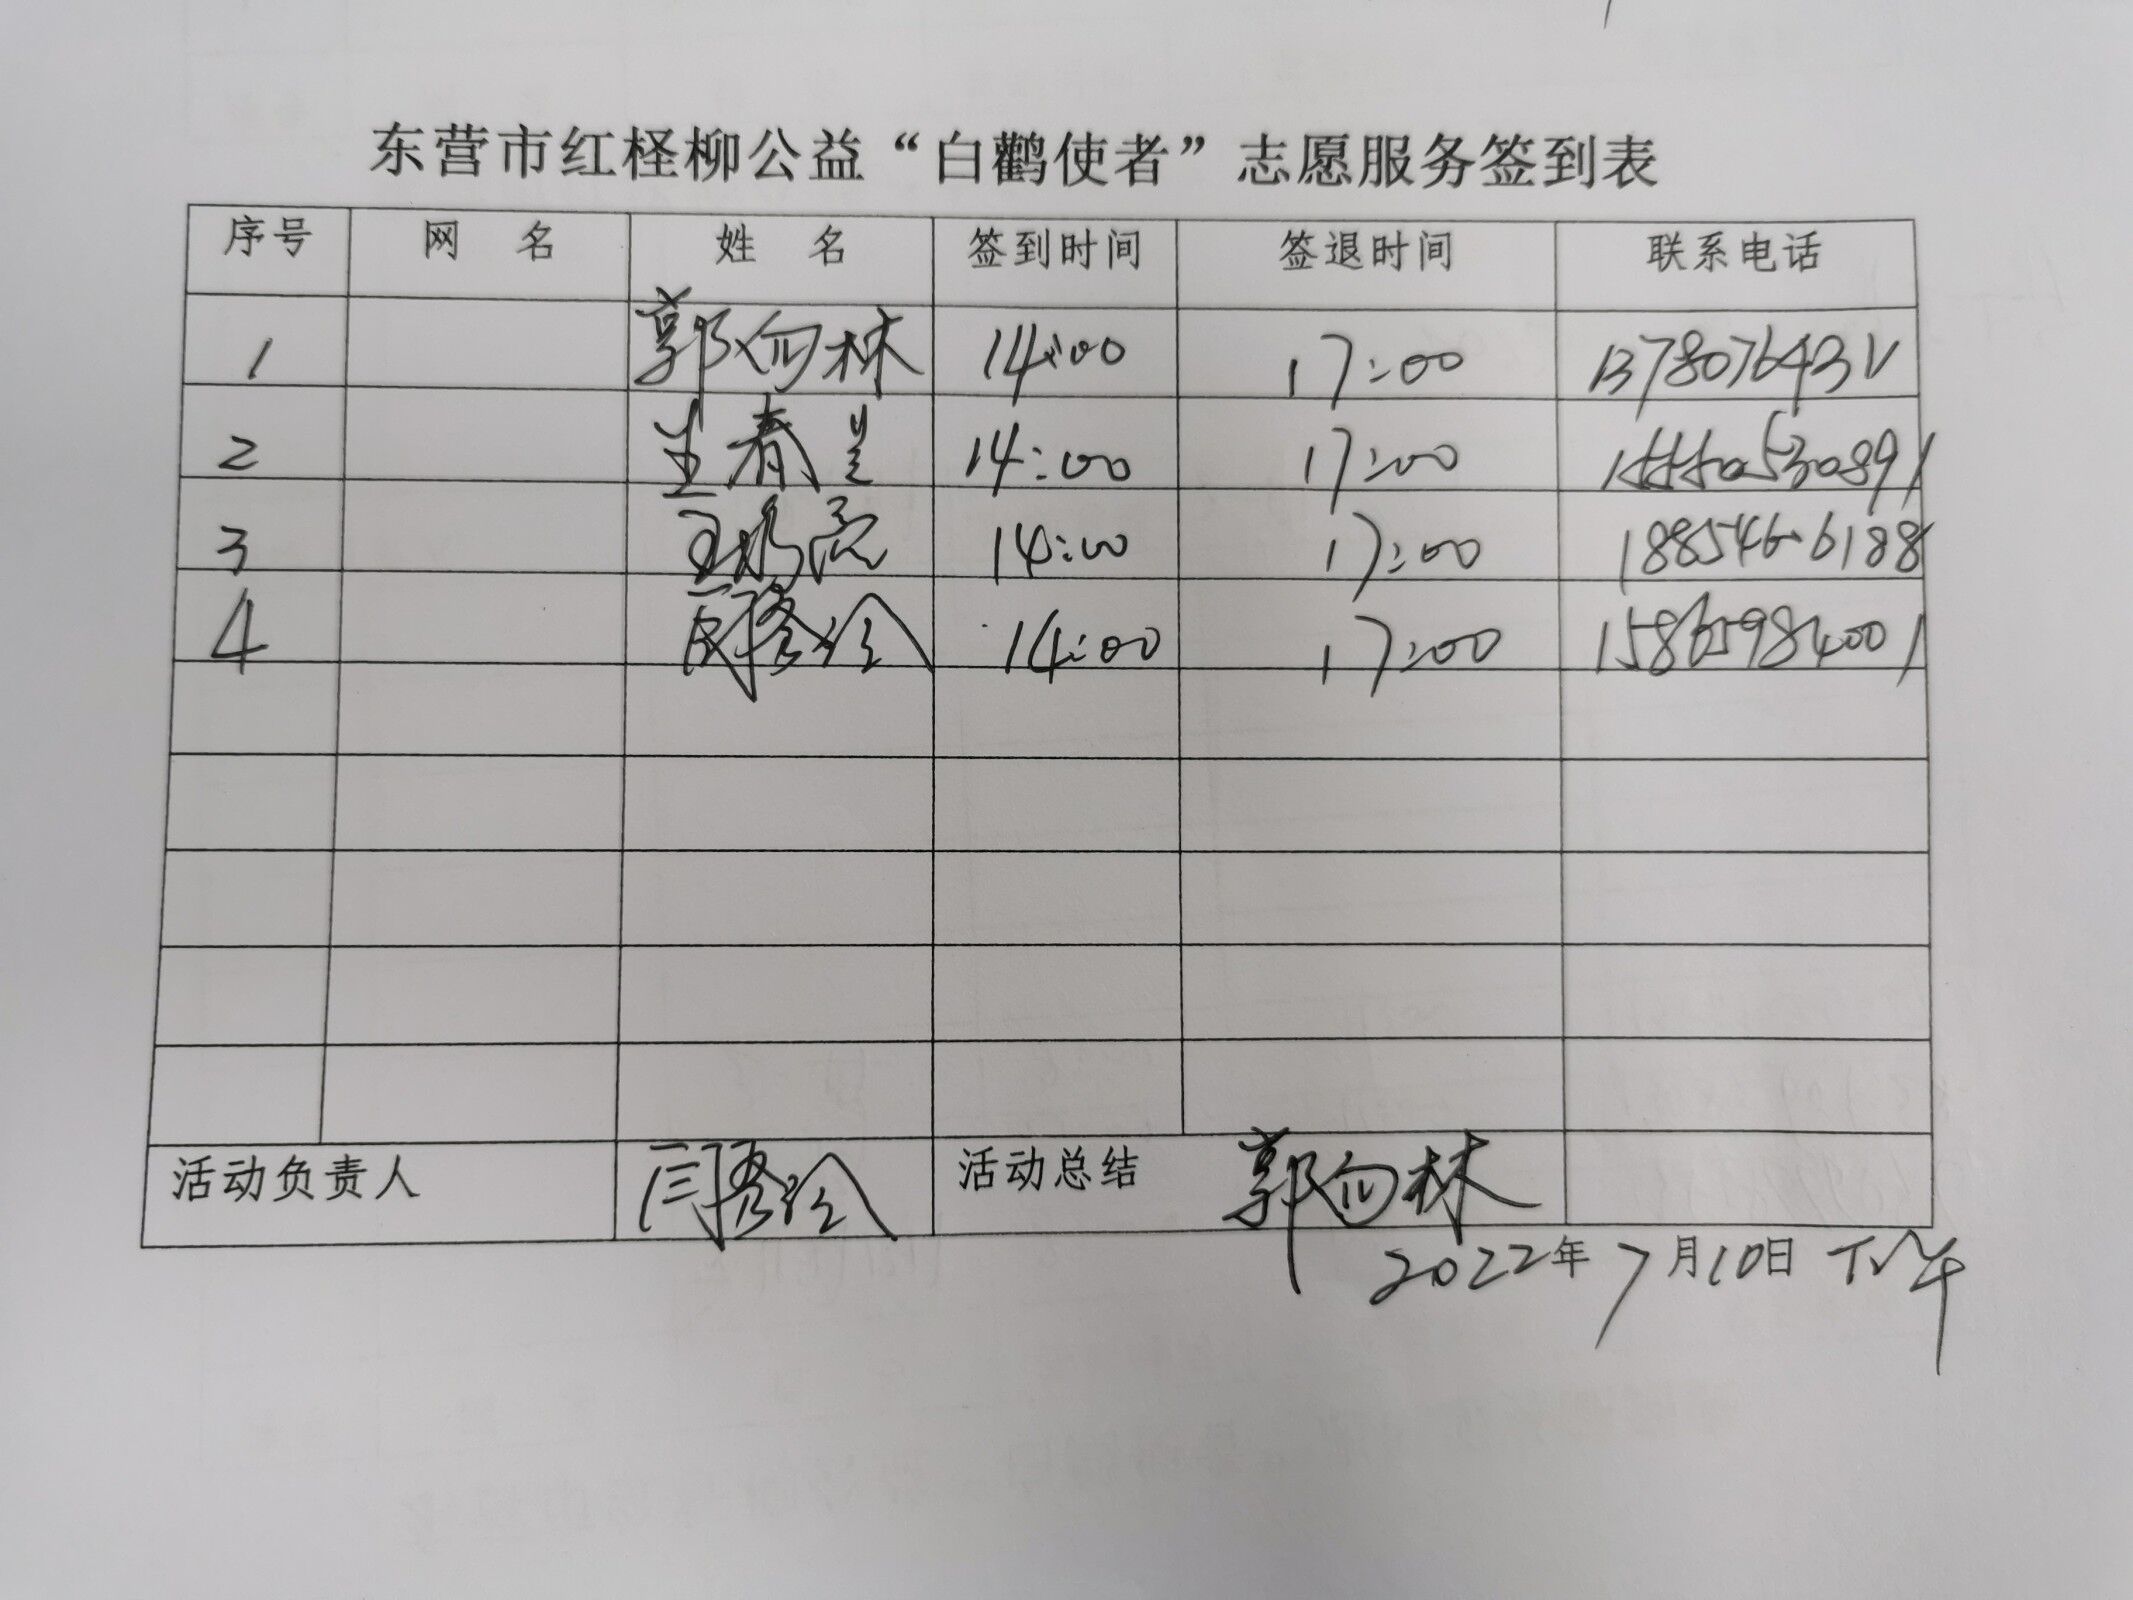 东营市红柽柳公益“白鹳使者”志愿服务签到表
序号 网 名 姓 名 签到时间 签退时间 联系电话
1 郭向林 14:00 17:00
2 14:00 17:00 15550530891
3 14:00 17:00 18854666188
4 14:00 17:00 15865984001
活动负责人 活动总结 郭向林
2022年7月10日 下午